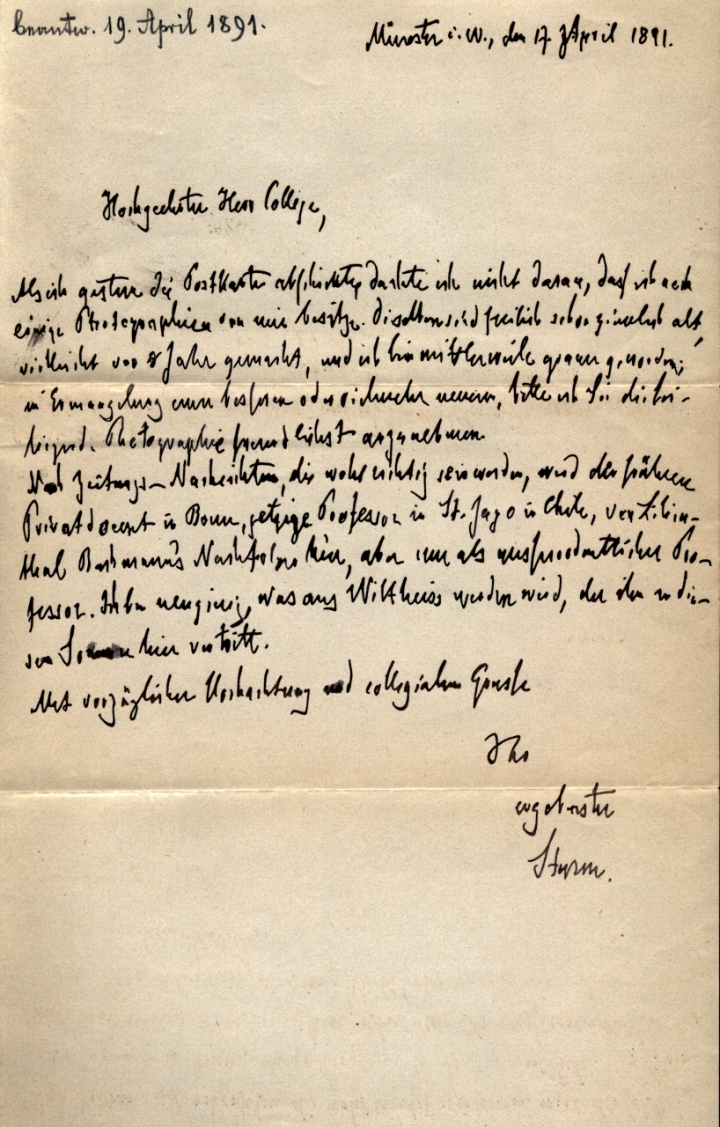 beantw. 19. April 1891.
Münster i. W., den 17. April 1891.
Hochgeehrter Herr College,
Als ich gestern die Postkarte abschickte, dachte ich nicht daran, daß ich noch
einige Photographien von mir besitze. Dieselben sind freilich schon ziemlich alt,
vielleicht vor 8 Jahr gemacht, und ich bin mittlerweile grau geworden;
in Ermangelung einer besseren oder vielmehr neueren, bitte ich Sie die bei-
liegende Photographie freundlichst anzunehmen.
Nach Zeitungs-Nachrichten, die wohl richtig sein werden, wird der frühere
Privatdocent in Bonn, jetzige Professor in St. Jago in Chile, von Lilien-
thal Bachmann's Nachfolger hier, aber nur als ausserordentlicher Pro-
fessor. Ich bin neugierig, was aus Wiltheiss werden wird, der ihn in die-
sem Sommer hier vertritt.
Mit vorzüglicher Hochachtung und collegialem Grusse
Ihr
ergebenster
Sturm.